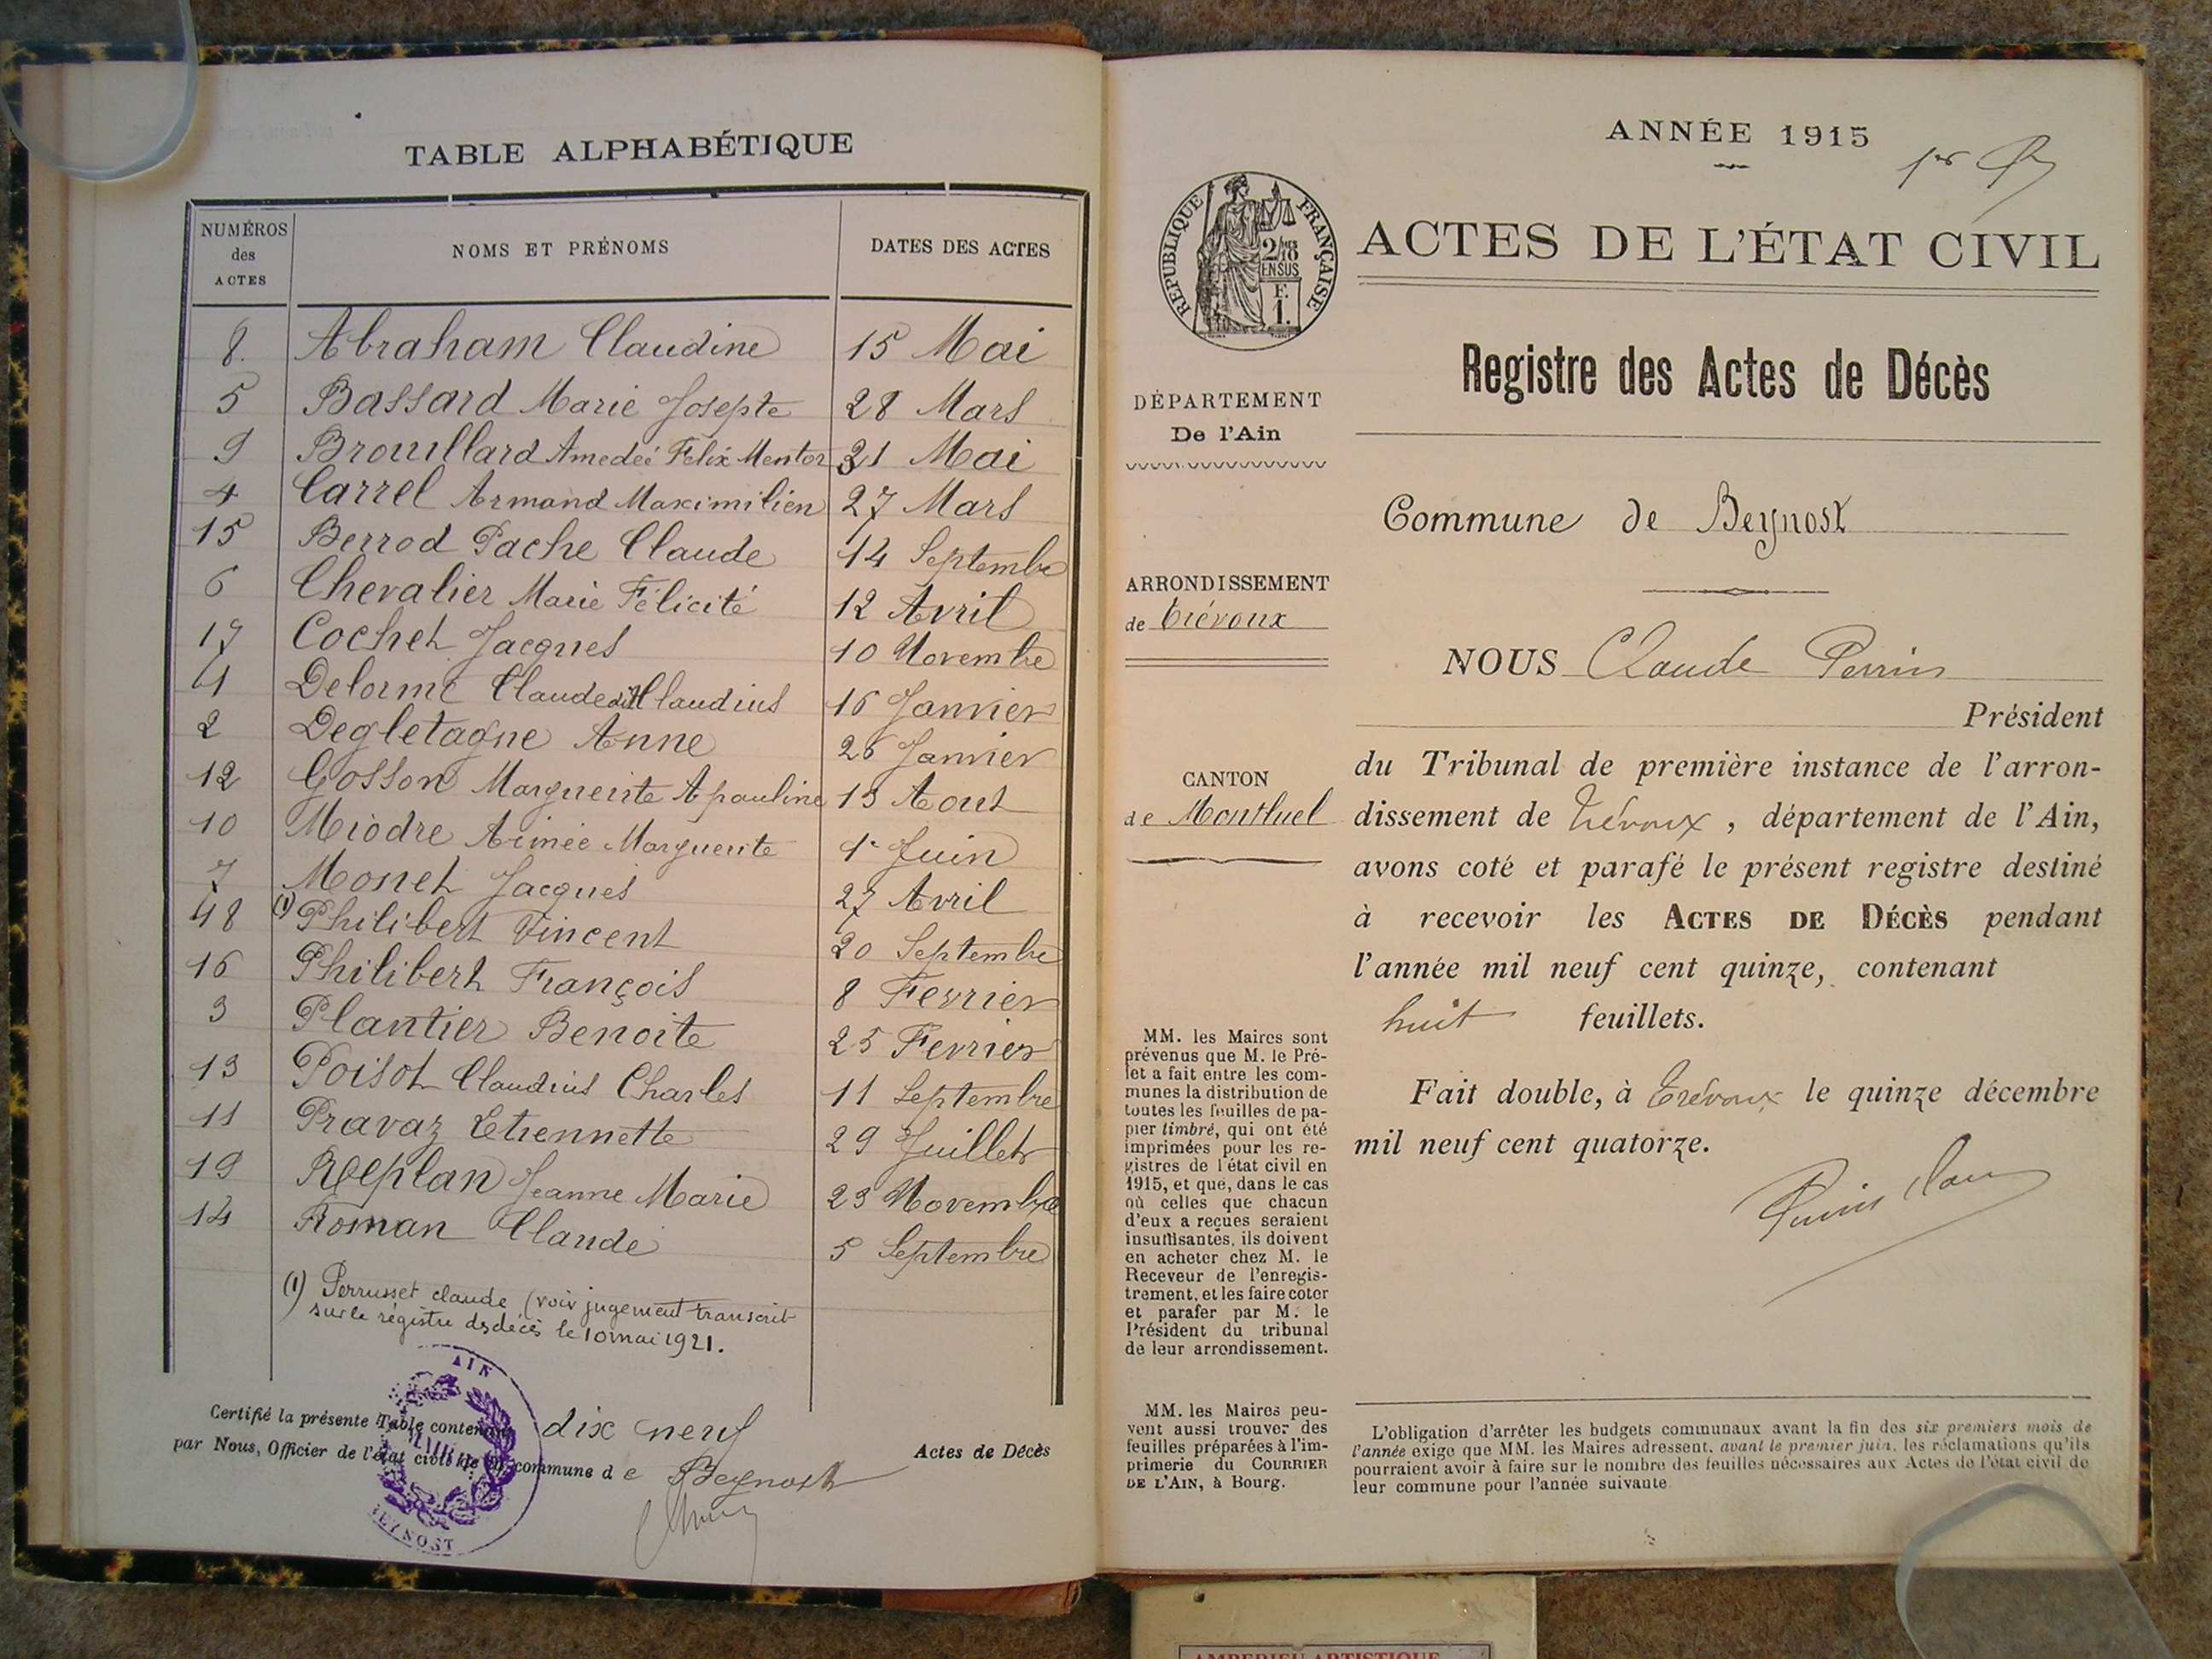 TABLE ALPHABÉTIQUE
NUMÉROS
des
ACTES
NOMS ET PRÉNOMS
DATES DES ACTES
8. Abraham Claudine 15 Mai
5 Bassard Marie Josepte 28 Mars
9 Brouillard Amedeé Félix Mentor 31 Mai
4 Carrel Armand Maximilien 27 Mars
15 Berrod Pache Claude 14 Septembre
6 Chevalier Marie Félicité 12 Avril
17 Cochet Jacques 10 Novembre
1 Delorme Claude dit Claudius 16 Janvier
2 Degletagne Anne 26 Janvier
12 Gosson Marguerite Apauline 13 Aout
10 Miodre Aimée Marguerite 1er Juin
7 Monet Jacques 27 Avril
18 (1) Philibert Vincent 20 Septembre
16 Philibert François 8 Fevrier
3 Plantier Benoite 25 Fevrier
13 Poisot Claudius Charles 11 Septembre
11 Pravaz Etiennette 29 Juillet
19 Replan Jeanne Marie 23 Novembre
14 Roman Claude 5 Septembre
(1) Perrusset claude (voir jugement transcrit
sur le régistre des décès le 10 mai 1921.
AIN
MAIRIE DE
BEYNOST
Certifié la présente Table contenant dix neuf Actes de Décès
par Nous, Officier de l'état civil de la commune de Beynost
ANNÉE 1915
1er
RÉPUBLIQUE FRANÇAISE
2/10
EN SUS
F.
1.
ACTES DE L'ÉTAT CIVIL
Registre des Actes de Décès
DÉPARTEMENT
De l'Ain
Commune de Beynost
ARRONDISSEMENT
de Trévoux
NOUS Claude Perrin
Président
CANTON
de Montluel
du Tribunal de première instance de l'arron-
dissement de Trévoux, département de l'Ain,
avons coté et parafé le présent registre destiné
à recevoir les ACTES DE DÉCÈS pendant
l'année mil neuf cent quinze, contenant
huit feuillets.
Fait double, à Trévoux le quinze décembre
mil neuf cent quatorze.
MM. les Maires sont
prévenus que M. le Pré-
fet a fait entre les com-
munes la distribution de
toutes les feuilles de pa-
pier timbré, qui ont été
imprimées pour les re-
gistres de l'état civil en
1915, et que, dans le cas
où celles que chacun
d'eux a reçues seraient
insuffisantes, ils doivent
en acheter chez M. le
Receveur de l'enregis-
trement, et les faire coter
et parafer par M. le
Président du tribunal
de leur arrondissement.
MM. les Maires peu-
vent aussi trouver des
feuilles préparées à l'im-
primerie du COURRIER
DE L'AIN, à Bourg.
L'obligation d'arrêter les budgets communaux avant la fin des six premiers mois de
l'année exige que MM. les Maires adressent, avant le premier juin, les réclamations qu'ils
pourraient avoir à faire sur le nombre des feuilles nécessaires aux Actes de l'état civil de
leur commune pour l'année suivante.
AMBERIEU ARTISTIQUE